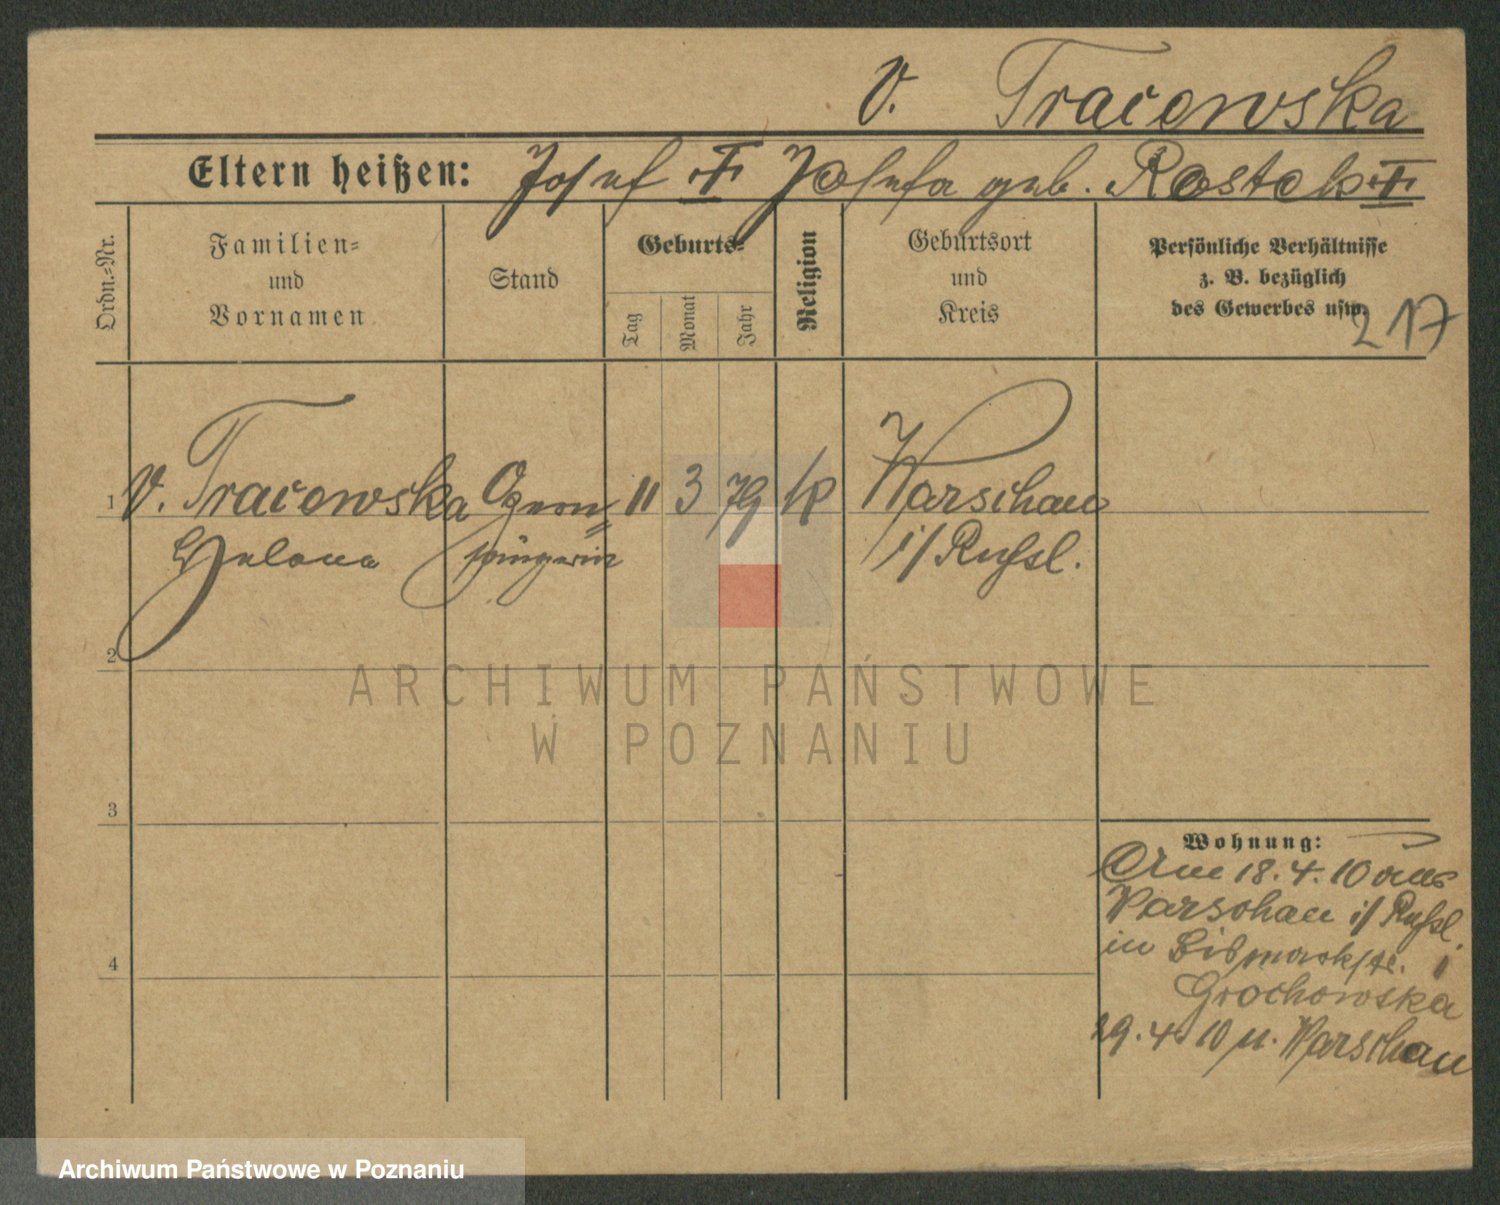 v. Tracewska
Eltern heißen: Josef † Josefa geb. Rostek †
Ordn.=Nr.
Familien=
und
Vornamen
Stand
Geburts=
Tag
Monat
Jahr
Religion
Geburtsort
und
Kreis
Persönliche Verhältnisse
z. B. bezüglich
des Gewerbes usw.
217
1 v. Tracewska Opern= 11 3 79 k Warschau
Helena sängerin i/Rußl.
2
3
4
Wohnung:
Am 18.4.10 aus
Warschau i/Rußl.
in Bismarckstr. 1
Grochowska
29.4.10 n. Warschau
ARCHIWUM PAŃSTWOWE
W POZNANIU
Archiwum Państwowe w Poznaniu